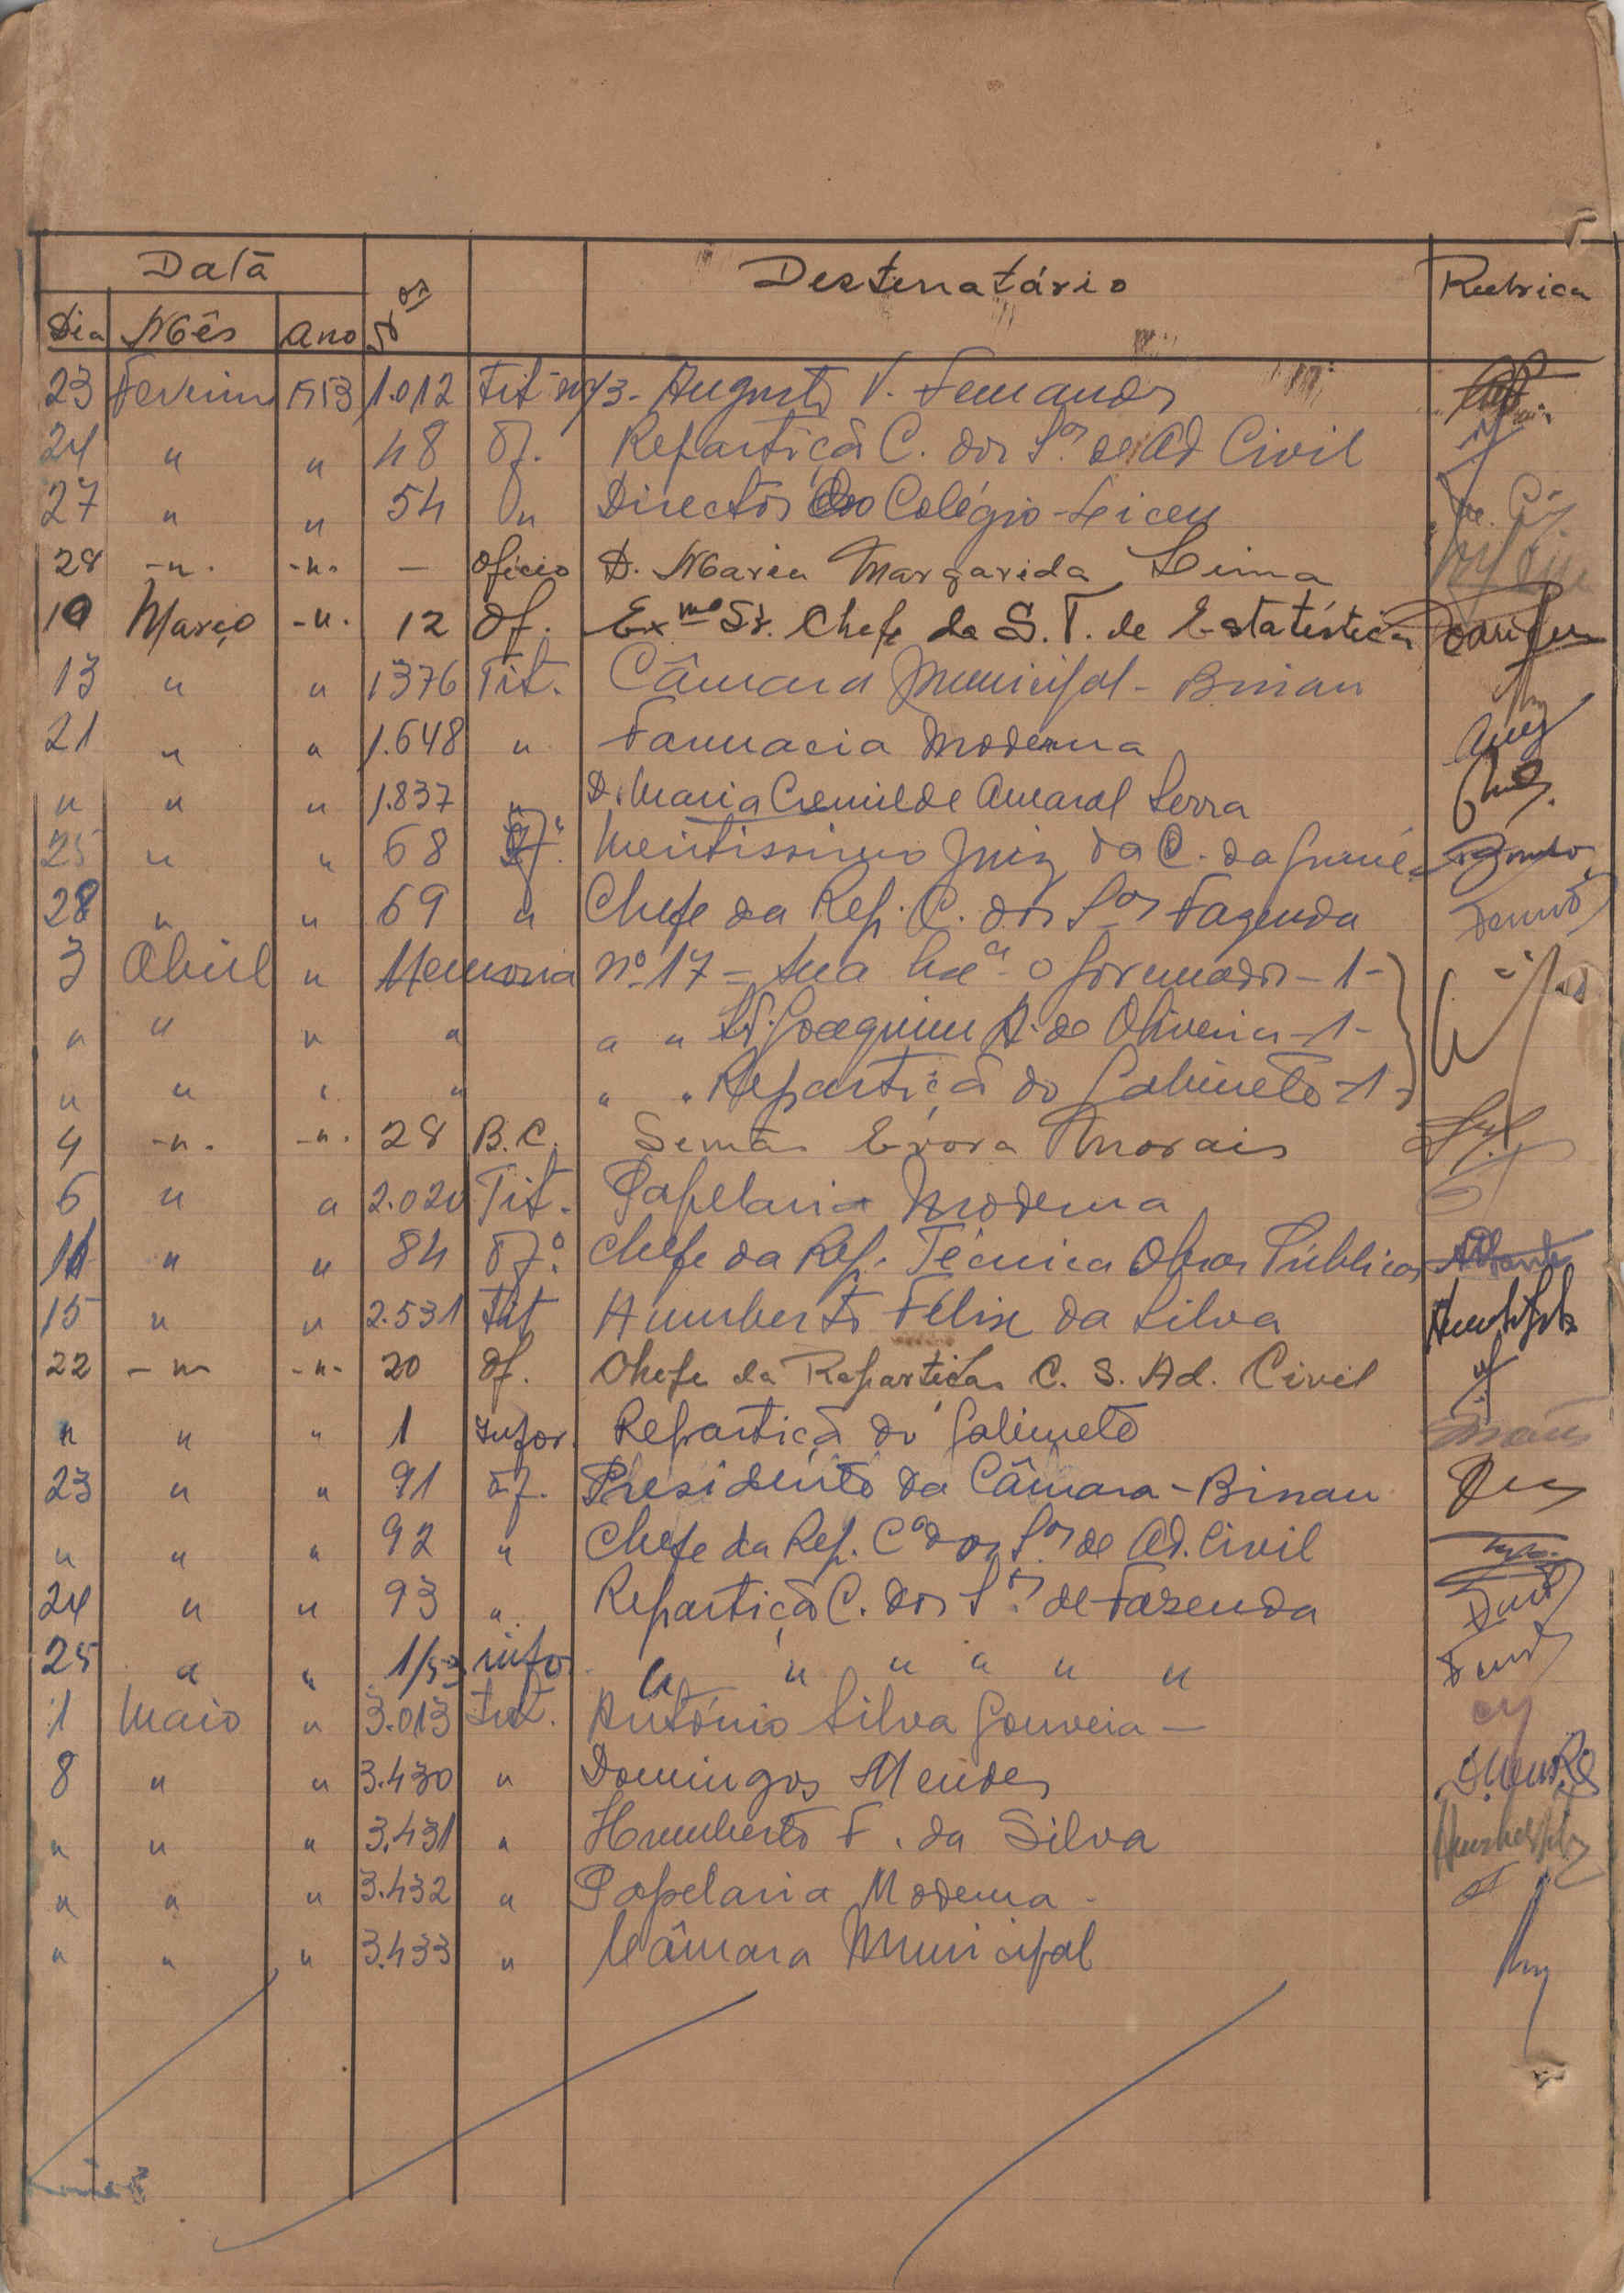 Data Destinatário Rubrica
Dia Mês Ano Nos
23 Fevereiro 1953 1.012 Tit- Augusto V. Fernandes
24 " " 48 Of. Repartição C. dos S.os de Ad Civil
27 " " 54 " Director do Colégio-Liceu
28 -"- -"- — Oficio D. Maria Margarida Lima
10 Março -"- 12 Of. Exmo Sr. Chefe da S. T. de Estatística
13 " " 1376 Tit. Câmara Municipal - Bissau
21 " " 1.648 " Farmacia Moderna
" " " 1.837 " D. Maria Cremilde Amaral Serra
25 " " 68 Of. Meritissimo Juiz da C. da Guiné
28 " " 69 " Chefe da Rep. C. dos S.os Fazenda
3 Abril " Memoria nº 17 = Sua Exª o Governador - 1 -
" " " " " " Sr. Joaquim A. de Oliveira - 1 -
" " " " " " Repartição do Gabinete - 1 -
4 -"- -"- 28 B.C. Évora Morais
6 " " 2.020 Tit. Papelaria Moderna
11 " " 84 Of.º Chefe da Rep. Técnica Obras Públicas
15 " " 2.531 Tit Humberto Félix da Silva
22 -"- -"- 20 Of. Chefe da Repartição C. S. Ad. Civil
" " " 1 Infor. Repartição do Gabinete
23 " " 91 Of. Presidente da Câmara - Bissau
" " " 92 " Chefe da Rep. C. dos S.os de Ad. Civil
24 " " 93 " Repartição C. dos S.os de Fazenda
25 " " 1/53 info " " " " " "
1 Maio " 3.013 Tit. António Silva Gouveia —
8 " " 3.430 " Domingos Mendes D. Mendes
" " " 3.431 " Humberto F. da Silva
" " " 3.432 " Papelaria Moderna -
" " " 3.433 " Câmara Municipal